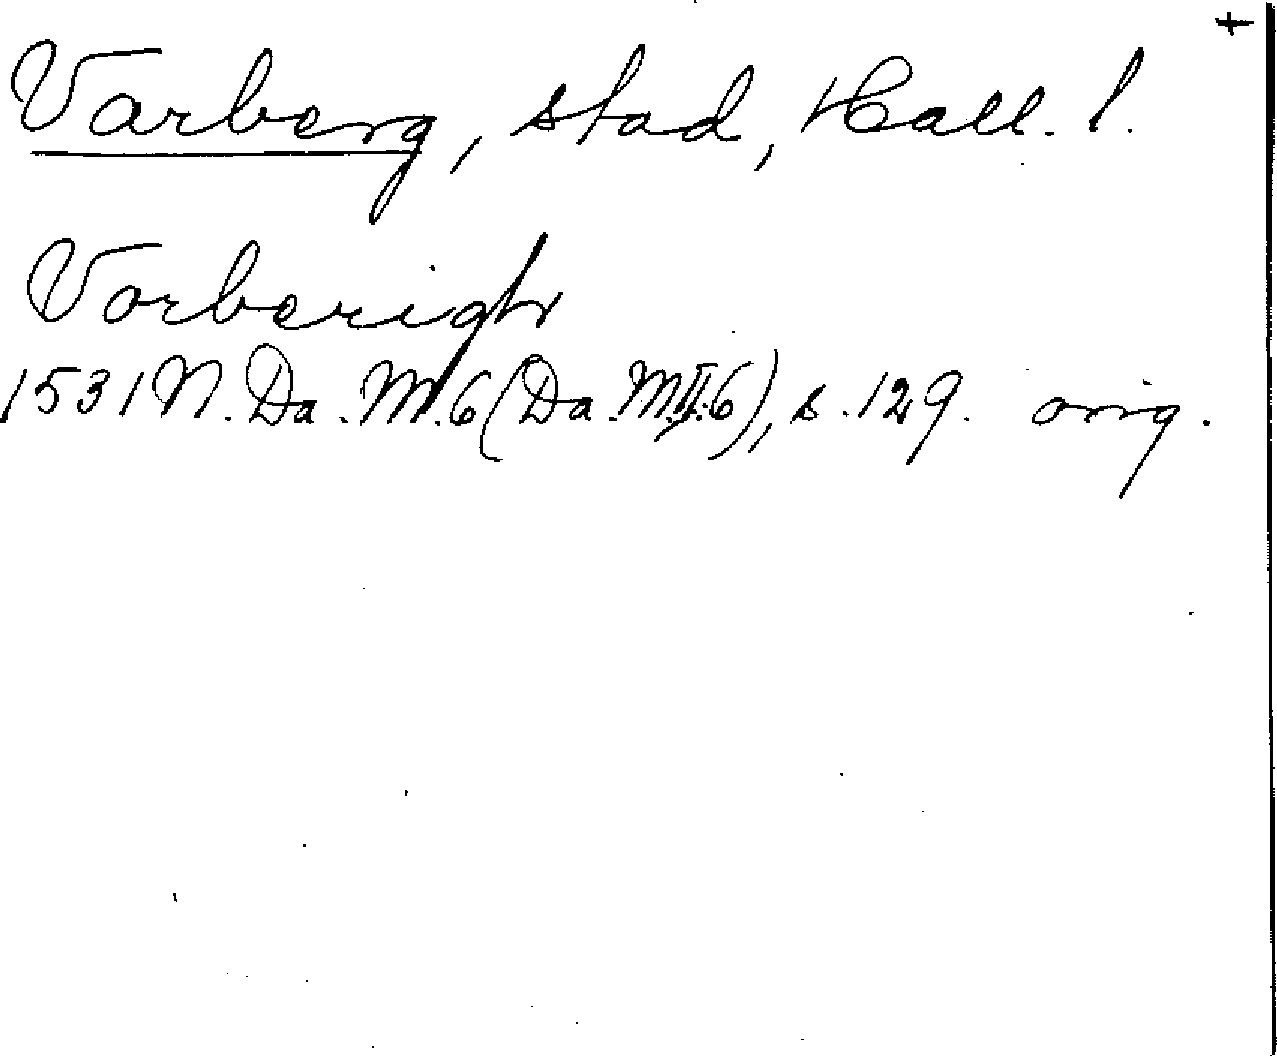 +
Varberg, stad, Hall. l.
Vorberigh
1531 N. Da. M. 6 (Da. M. II. 6), s. 129. orig.